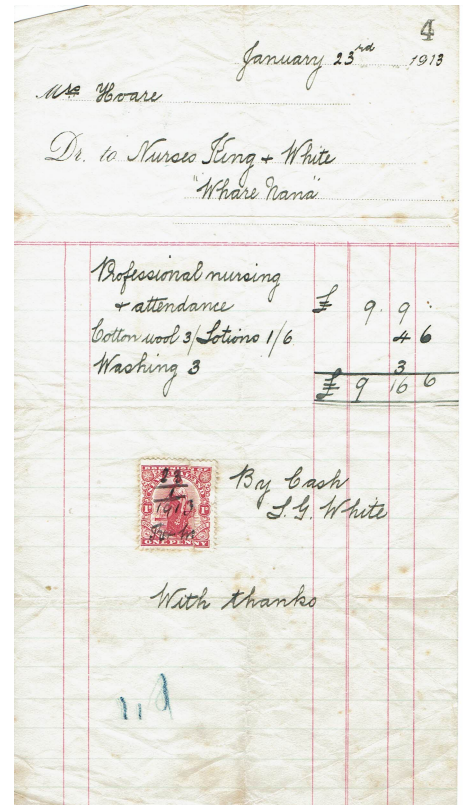 4
January 23rd 1913
Mrs Hoare
Dr. to Nurses King + White
"Whare Nana"
Professional nursing
+ attendance £ 9. 9 :
Cotton wool 3/ Lotions 1/6 4 6
Washing 3 3
£ 9 16 6
23
1
1913
1d 1d
ONE PENNY
By Cash
L. G. White
With thanks